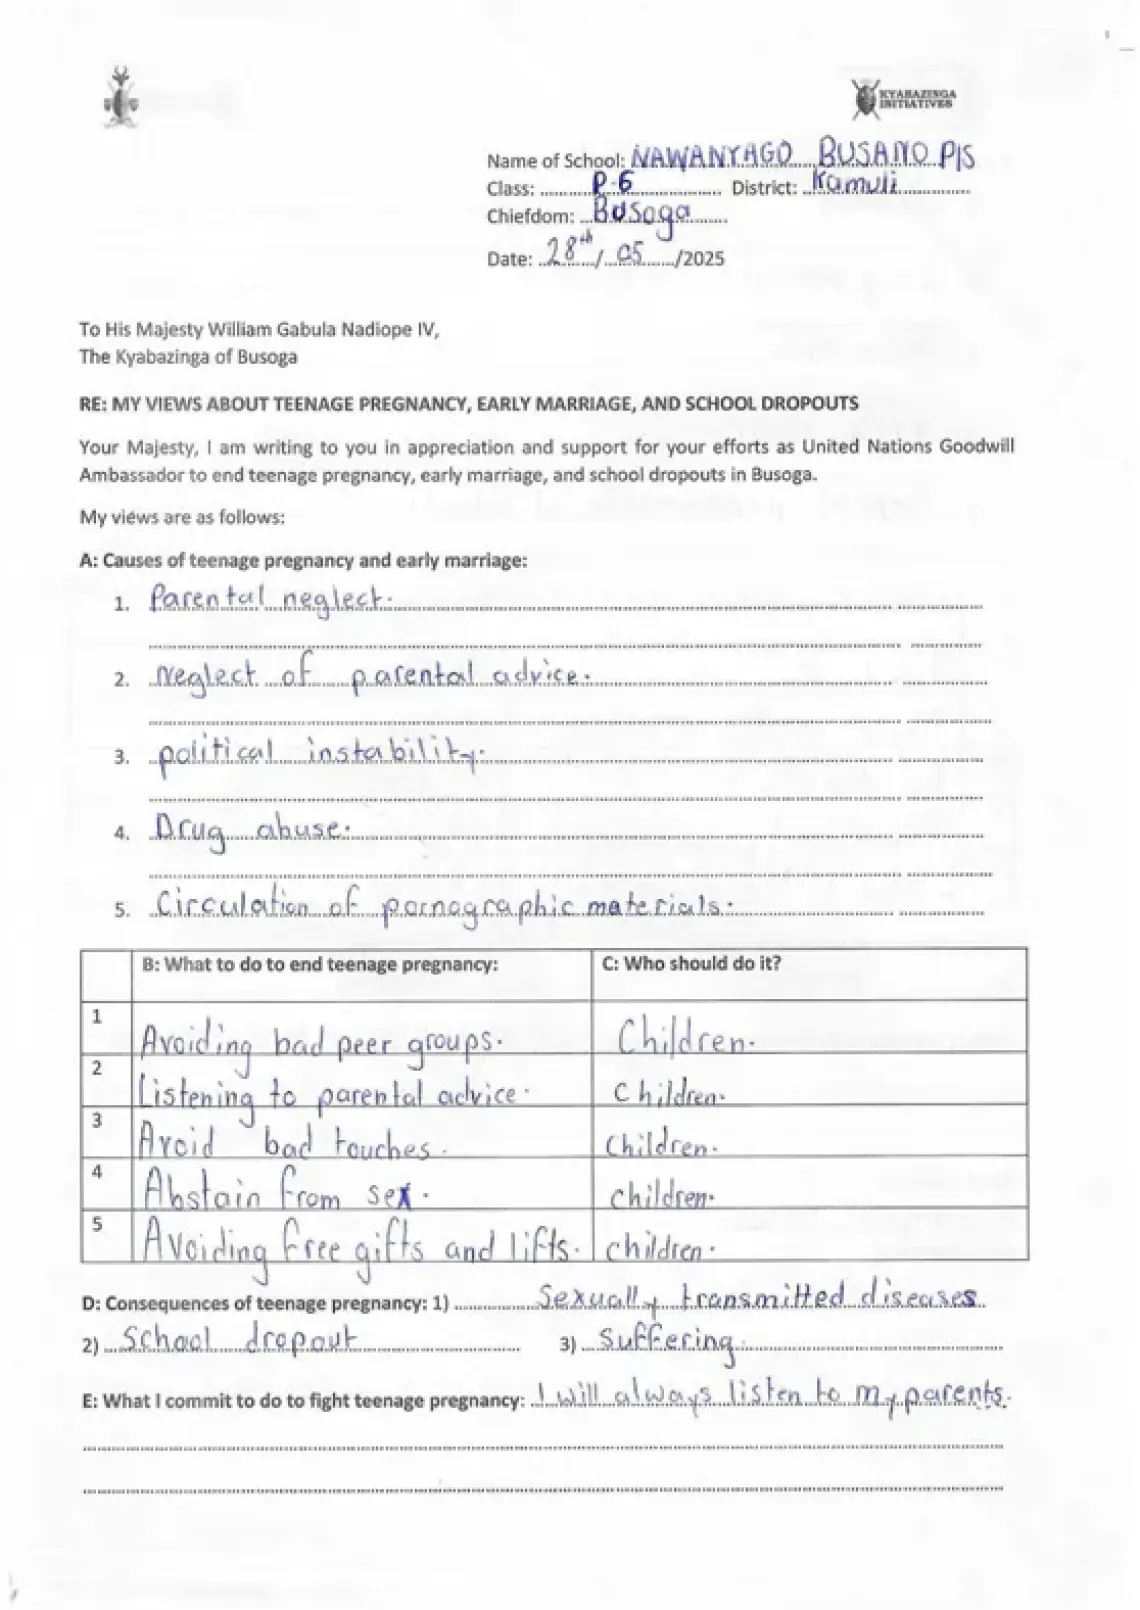 KYABAZINGA
INITIATIVES
Name of School: NAWANYAGO BUSANO P/S
Class: P.6 District: Kamuli
Chiefdom: Busoga
Date: 28th / 05 /2025
To His Majesty William Gabula Nadiope IV,
The Kyabazinga of Busoga
RE: MY VIEWS ABOUT TEENAGE PREGNANCY, EARLY MARRIAGE, AND SCHOOL DROPOUTS
Your Majesty, I am writing to you in appreciation and support for your efforts as United Nations Goodwill
Ambassador to end teenage pregnancy, early marriage, and school dropouts in Busoga.
My views are as follows:
A: Causes of teenage pregnancy and early marriage:
1. Parental neglect.
2. Neglect of parental advice.
3. political instability.
4. Drug abuse.
5. Circulation of pornographic materials.
B: What to do to end teenage pregnancy: C: Who should do it?
1 Avoiding bad peer groups. Children.
2 Listening to parental advice. Children.
3 Avoid bad touches. Children.
4 Abstain from sex. children.
5 Avoiding free gifts and lifts. children.
D: Consequences of teenage pregnancy: 1) Sexually transmitted diseases
2) School dropout 3) Suffering.
E: What I commit to do to fight teenage pregnancy: I will always listen to my parents.